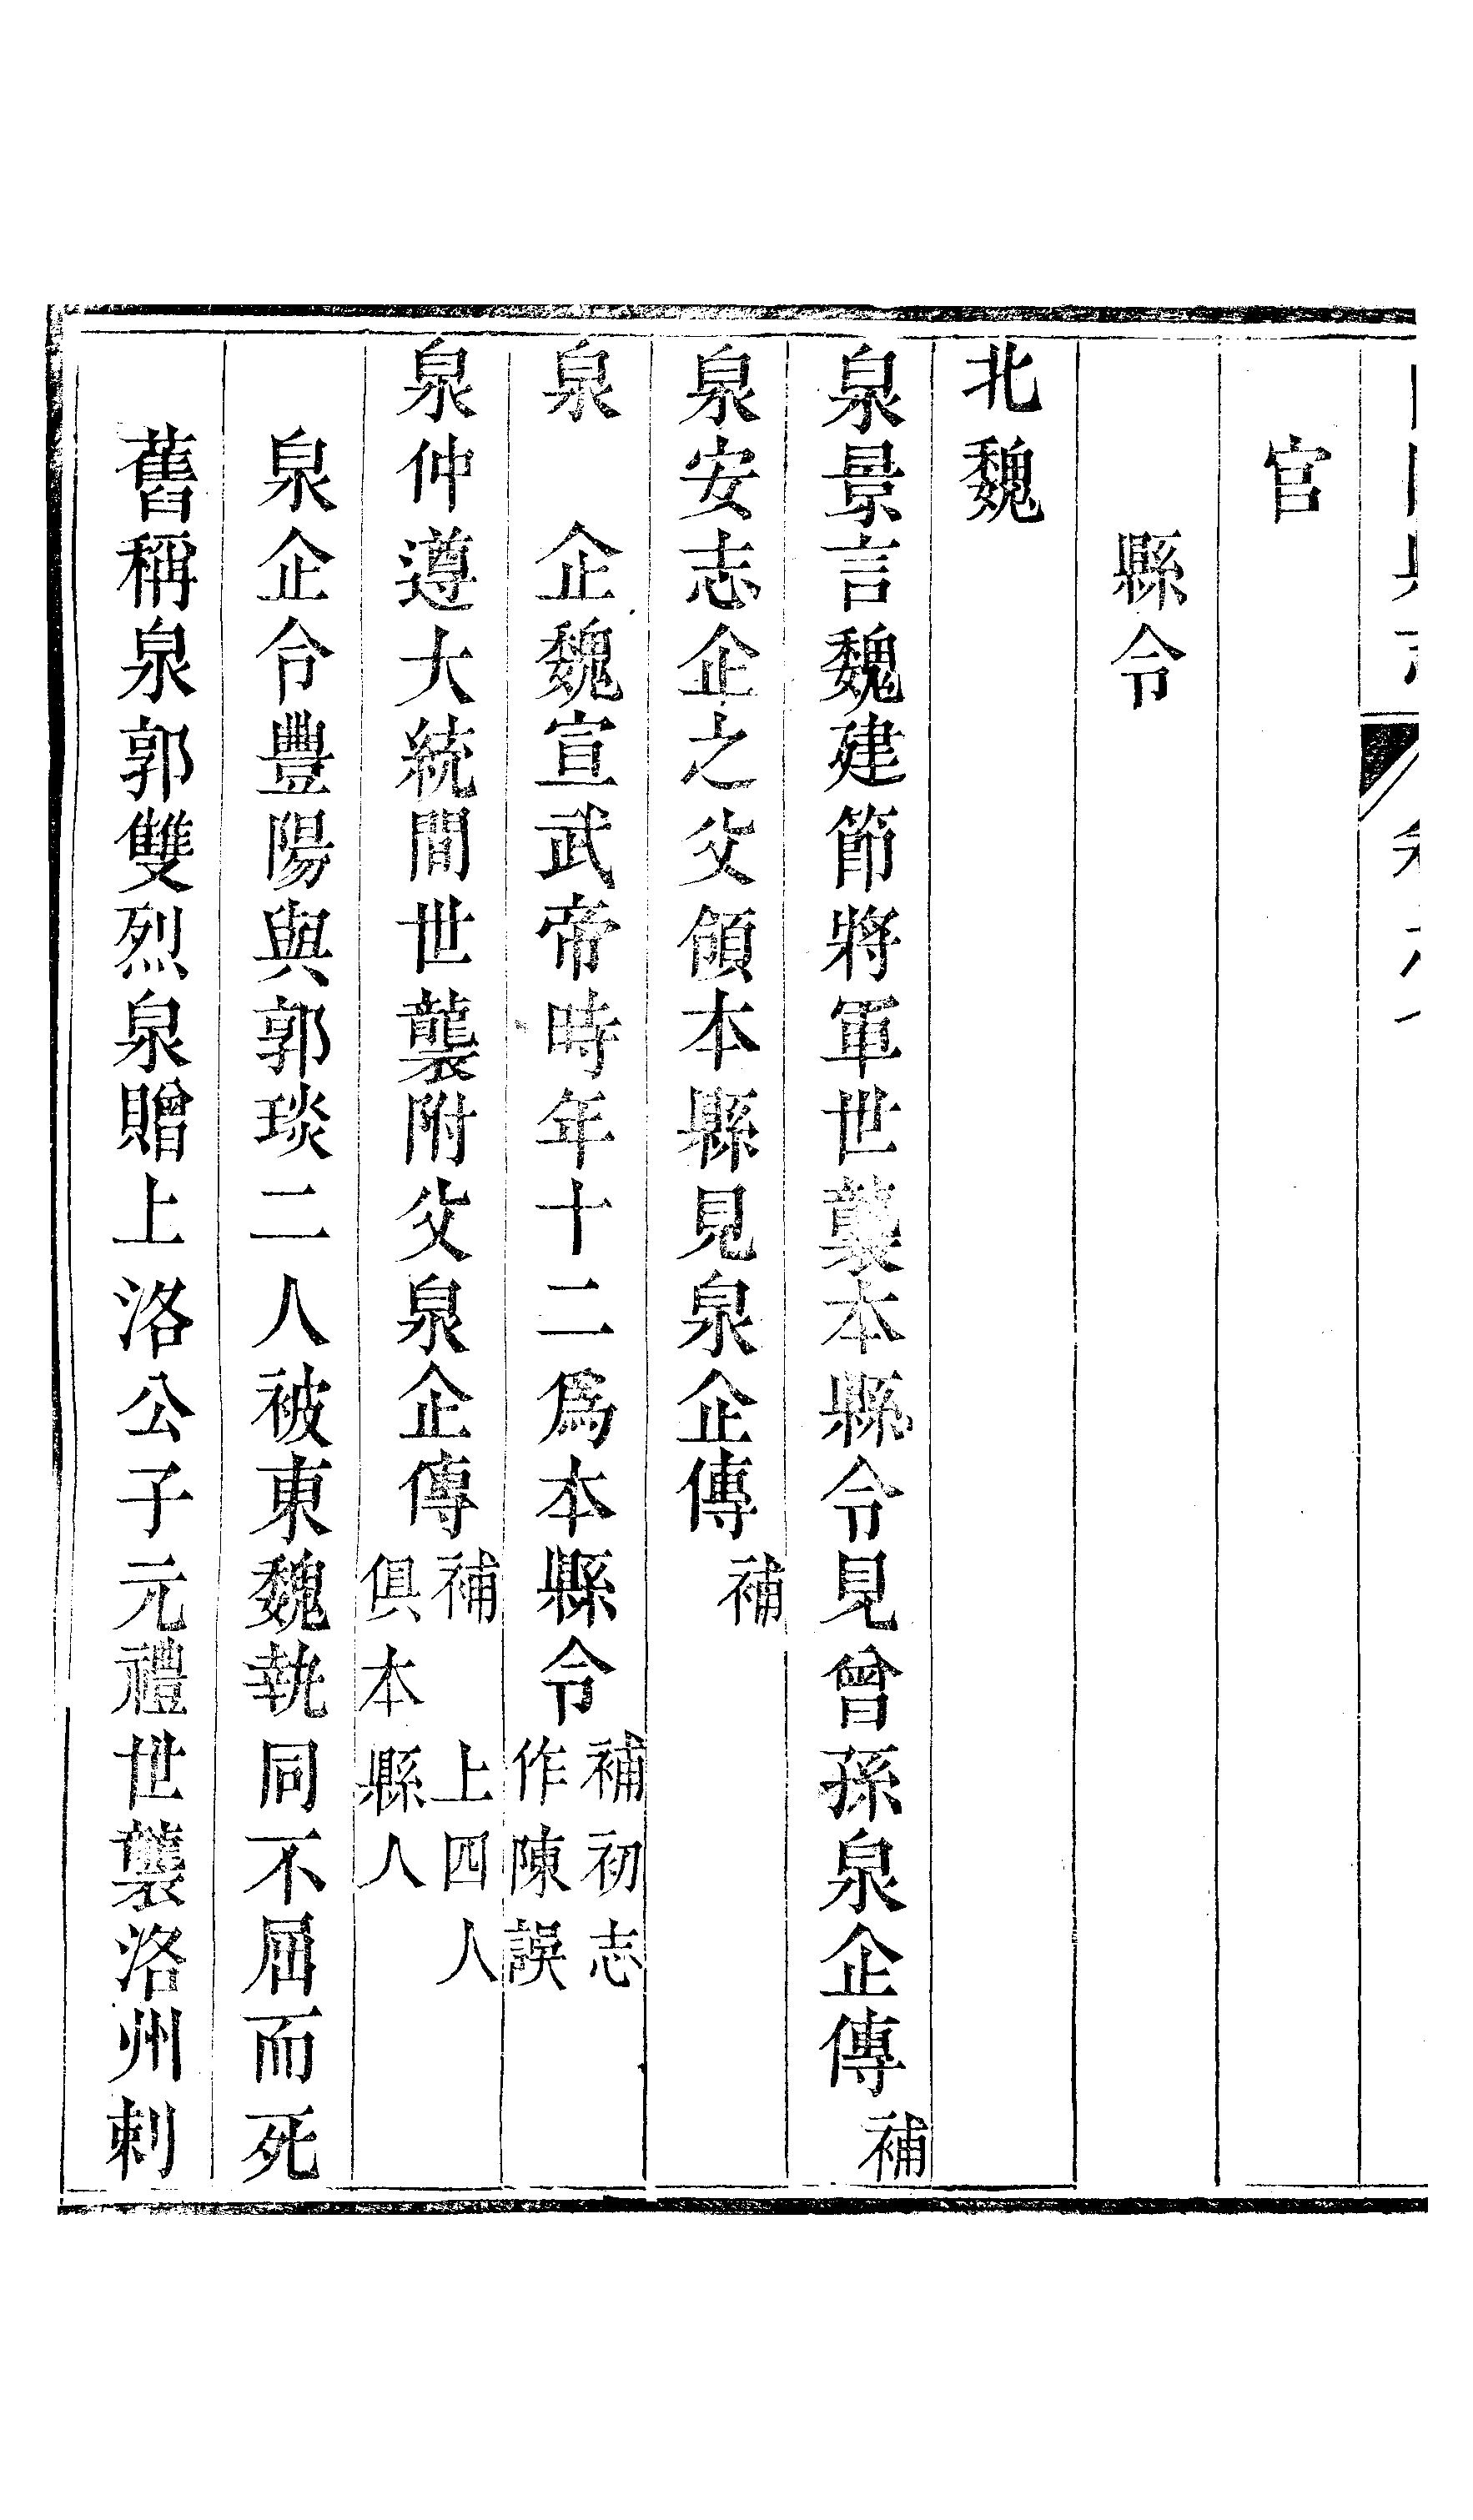 官
縣令
北魏
泉景言魏建節將軍世襲本縣令見曾孫泉企傳補
泉安志企之父領本縣見泉企傳補
泉　企魏宣武帝時年十二爲本縣令補初志作陳誤
泉仲遵大統間世襲附父泉企傳補　上四人俱本縣人
泉企令豐陽與郭琰二人被東魏執同不屈而死
舊稱泉郭雙烈泉贈上洛公子元禮世襲洛州刺